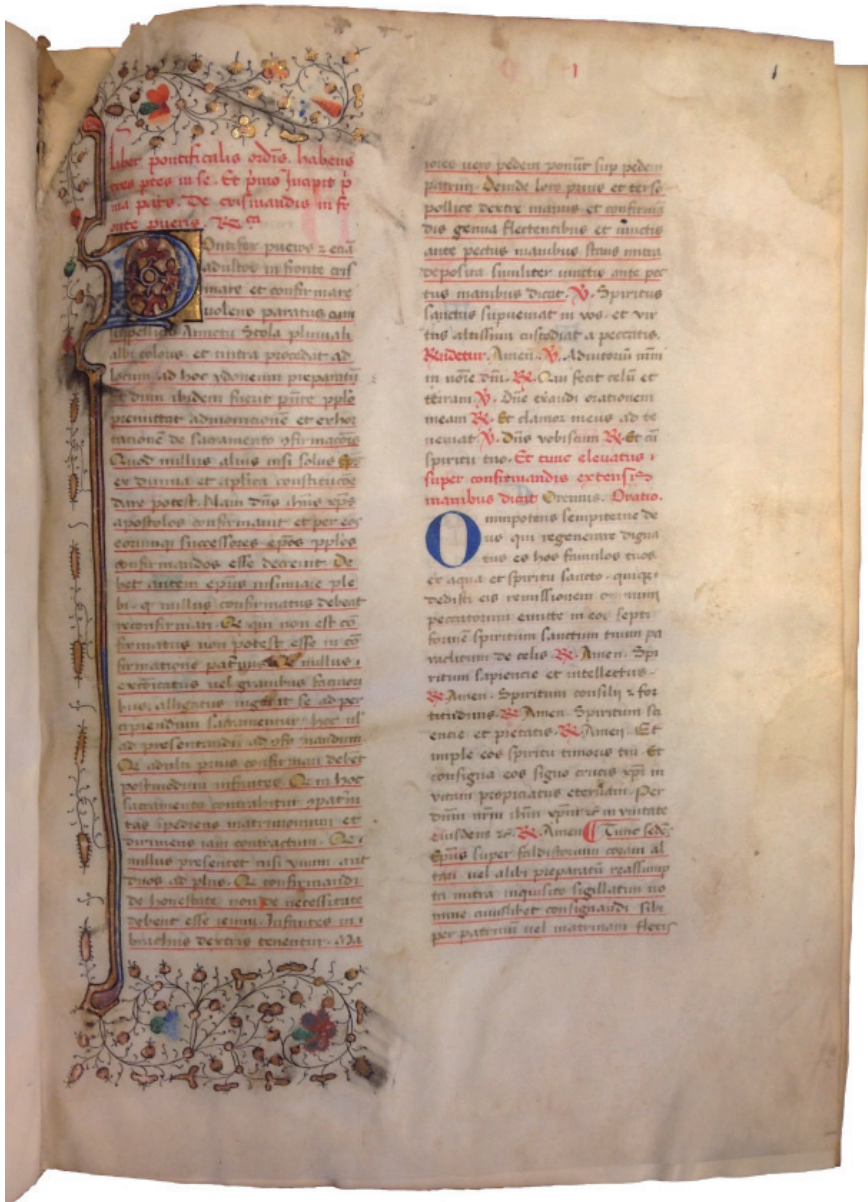 1
1
liber pontificalis ordis. habens
tres ptes in se. Et pimo Incipit p
ma pars. De crismandis in fr
onte pueris. Rca
Pontifex pueros z eciā
adultos in fronte cris
mare et confirmare
volens paratus cum
suppellicio Amictu Stola pluviali
albi coloris. et mitra procedat ad
locum ad hoc ydoneum preparatū
Et dum ibidem fuerit pūte pplo
premittat admonitionē et exhor
tacionē de sacramento ꝯfirmacōis
Quod nullus alius nisi solus Epc
ex divina et aplica constitucōe
dare potest. Nam dns ihus xps
apostolos confirmavit et per eos
eorumqz successores epos pplos
confirmandos esse decrevit. De
bet autem epus insinuare ple
bi. q nullus confirmatus debeat
reconfirmari. Qz qui non est cō
firmatus non potest esse in cō
firmatione patrinus. Qz nullus
excōicatus vel gravibus facinori
bus, alligatus ingerat se ad per
cipiendum sacramentum hoc ul
ad presentandū ad ꝯfirmandum
Qz adulti prius confiteri debet
postmodum infantes. Qz in hoc
sacramento contrahitur ꝯpatīni
tas īpediens matrimonium et
dirimens iam contractum. Qz
nullus presentet nisi unum. aut
duos ad plus. Qz confirmandi
de honestate non de necessitate
debent esse ieiuni. Infantes in
brachiis dextris tenentur. Ma
iores vero pedem ponūt sup pedem
patrini. Deinde loto prius et terso
pollice dextre manus et confirmā
dis genua flectentibus et iunctis
ante pectus manibus stans mitra
deposita similiter iunctis ante pec
tus manibus dicat. V. Spiritus
sanctus supveniat in vos. et vir
tus altissimi custodiat a peccatis.
Rndetur. Amen. V. Adiutoriū nrm
in noīe dni. R. Qui fecit celū et
terram V. Dne exaudi orationem
meam R. Et clamor meus ad te
veniat V. Dns vobiscum R. Et cū
spiritu tuo. Et tunc elevatis
super confirmandis extensis
manibus dicat Oremus. Oratio.
Omnipotens sempiterne de
us qui regenerare digna
tus es hos famulos tuos
ex aqua et spiritu sancto. quiqz
dedisti eis remissionem omnium
peccatorum emitte in eos septi
formē spiritum sanctum tuum pa
raclitum de celis R. Amen. Spi
ritum sapiencie et intellectus.
R. Amen. Spiritum consilii z for
titudinis. R. Amen. Spiritum sci
encie et pietatis. R. Amen. Et
imple eos spiritu timoris tui. Et
consigna eos signo crucis xpi in
vitam propiciatus eternam. Per
dnm nrm ihm xpm zc in unitate
eiusdem zc. R. Amen Tunc sedēs
Epus super faldistorium coram al
tari vel alibi preparatū reassump
ta mitra inquisito sigillatim no
mine cuiuslibet consignandi sibi
per patrinū vel matrinam flexis